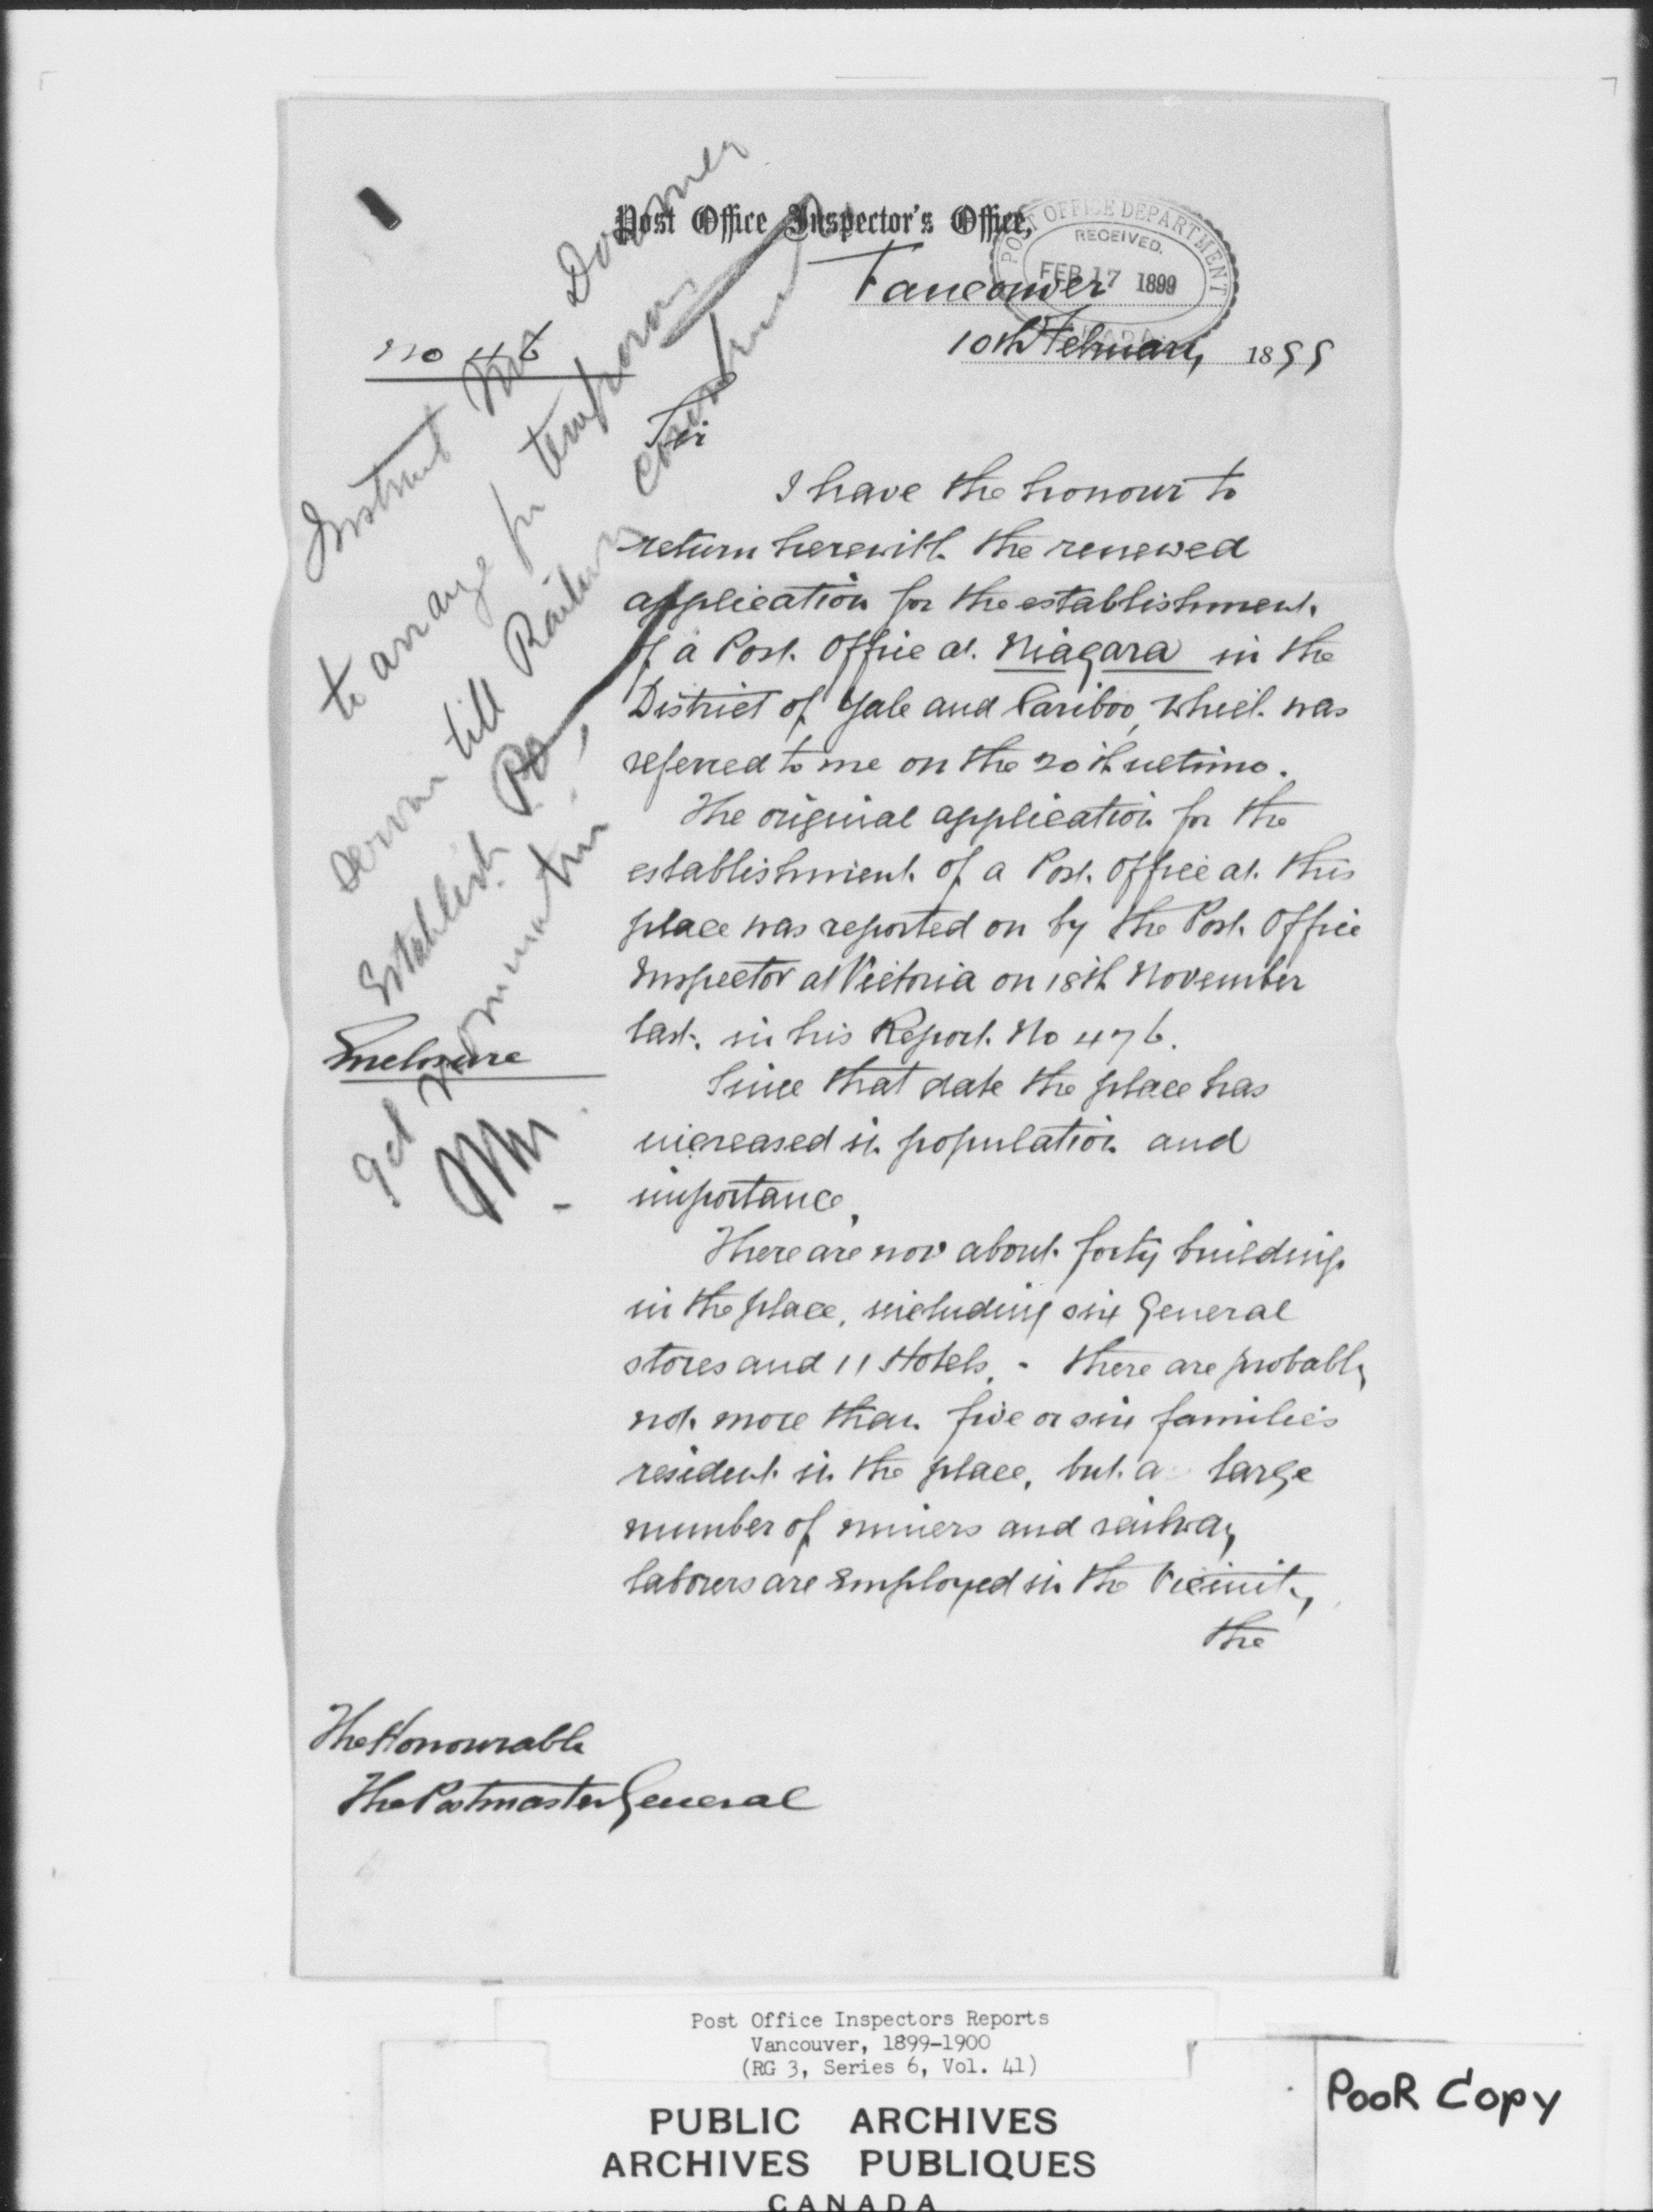 Post Office Inspector's Office,
POST OFFICE DEPARTMENT
RECEIVED.
FEB 17 1899
CANADA
Vancouver
10th February 1899
No 46
Sir
I have the honour to
return herewith the renewed
application for the establishment
of a Post Office at Niagara in the
District of Yale and Cariboo, which was
referred to me on the 20th ultimo.
The original application for the
establishment of a Post Office at this
place was reported on by the Post Office
Inspector at Victoria on 18th November
last, in his Report No 476.
Since that date the place has
increased in population and
importance.
There are now about forty buildings
in the place, including six General
stores and 11 Hotels. - there are probably
not more than five or six families
resident in the place, but a large
number of miners and railway
laborers are employed in the Vicinity,
the
Enclosure
The Honourable
The Postmaster General
Instruct Mr Dorman
to arrange for temporary
service till Railway
Establish PO
get nomination
Post Office Inspectors Reports
Vancouver, 1899-1900
(RG 3, Series 6, Vol. 41)
PUBLIC ARCHIVES
ARCHIVES PUBLIQUES
CANADA
POOR COPY